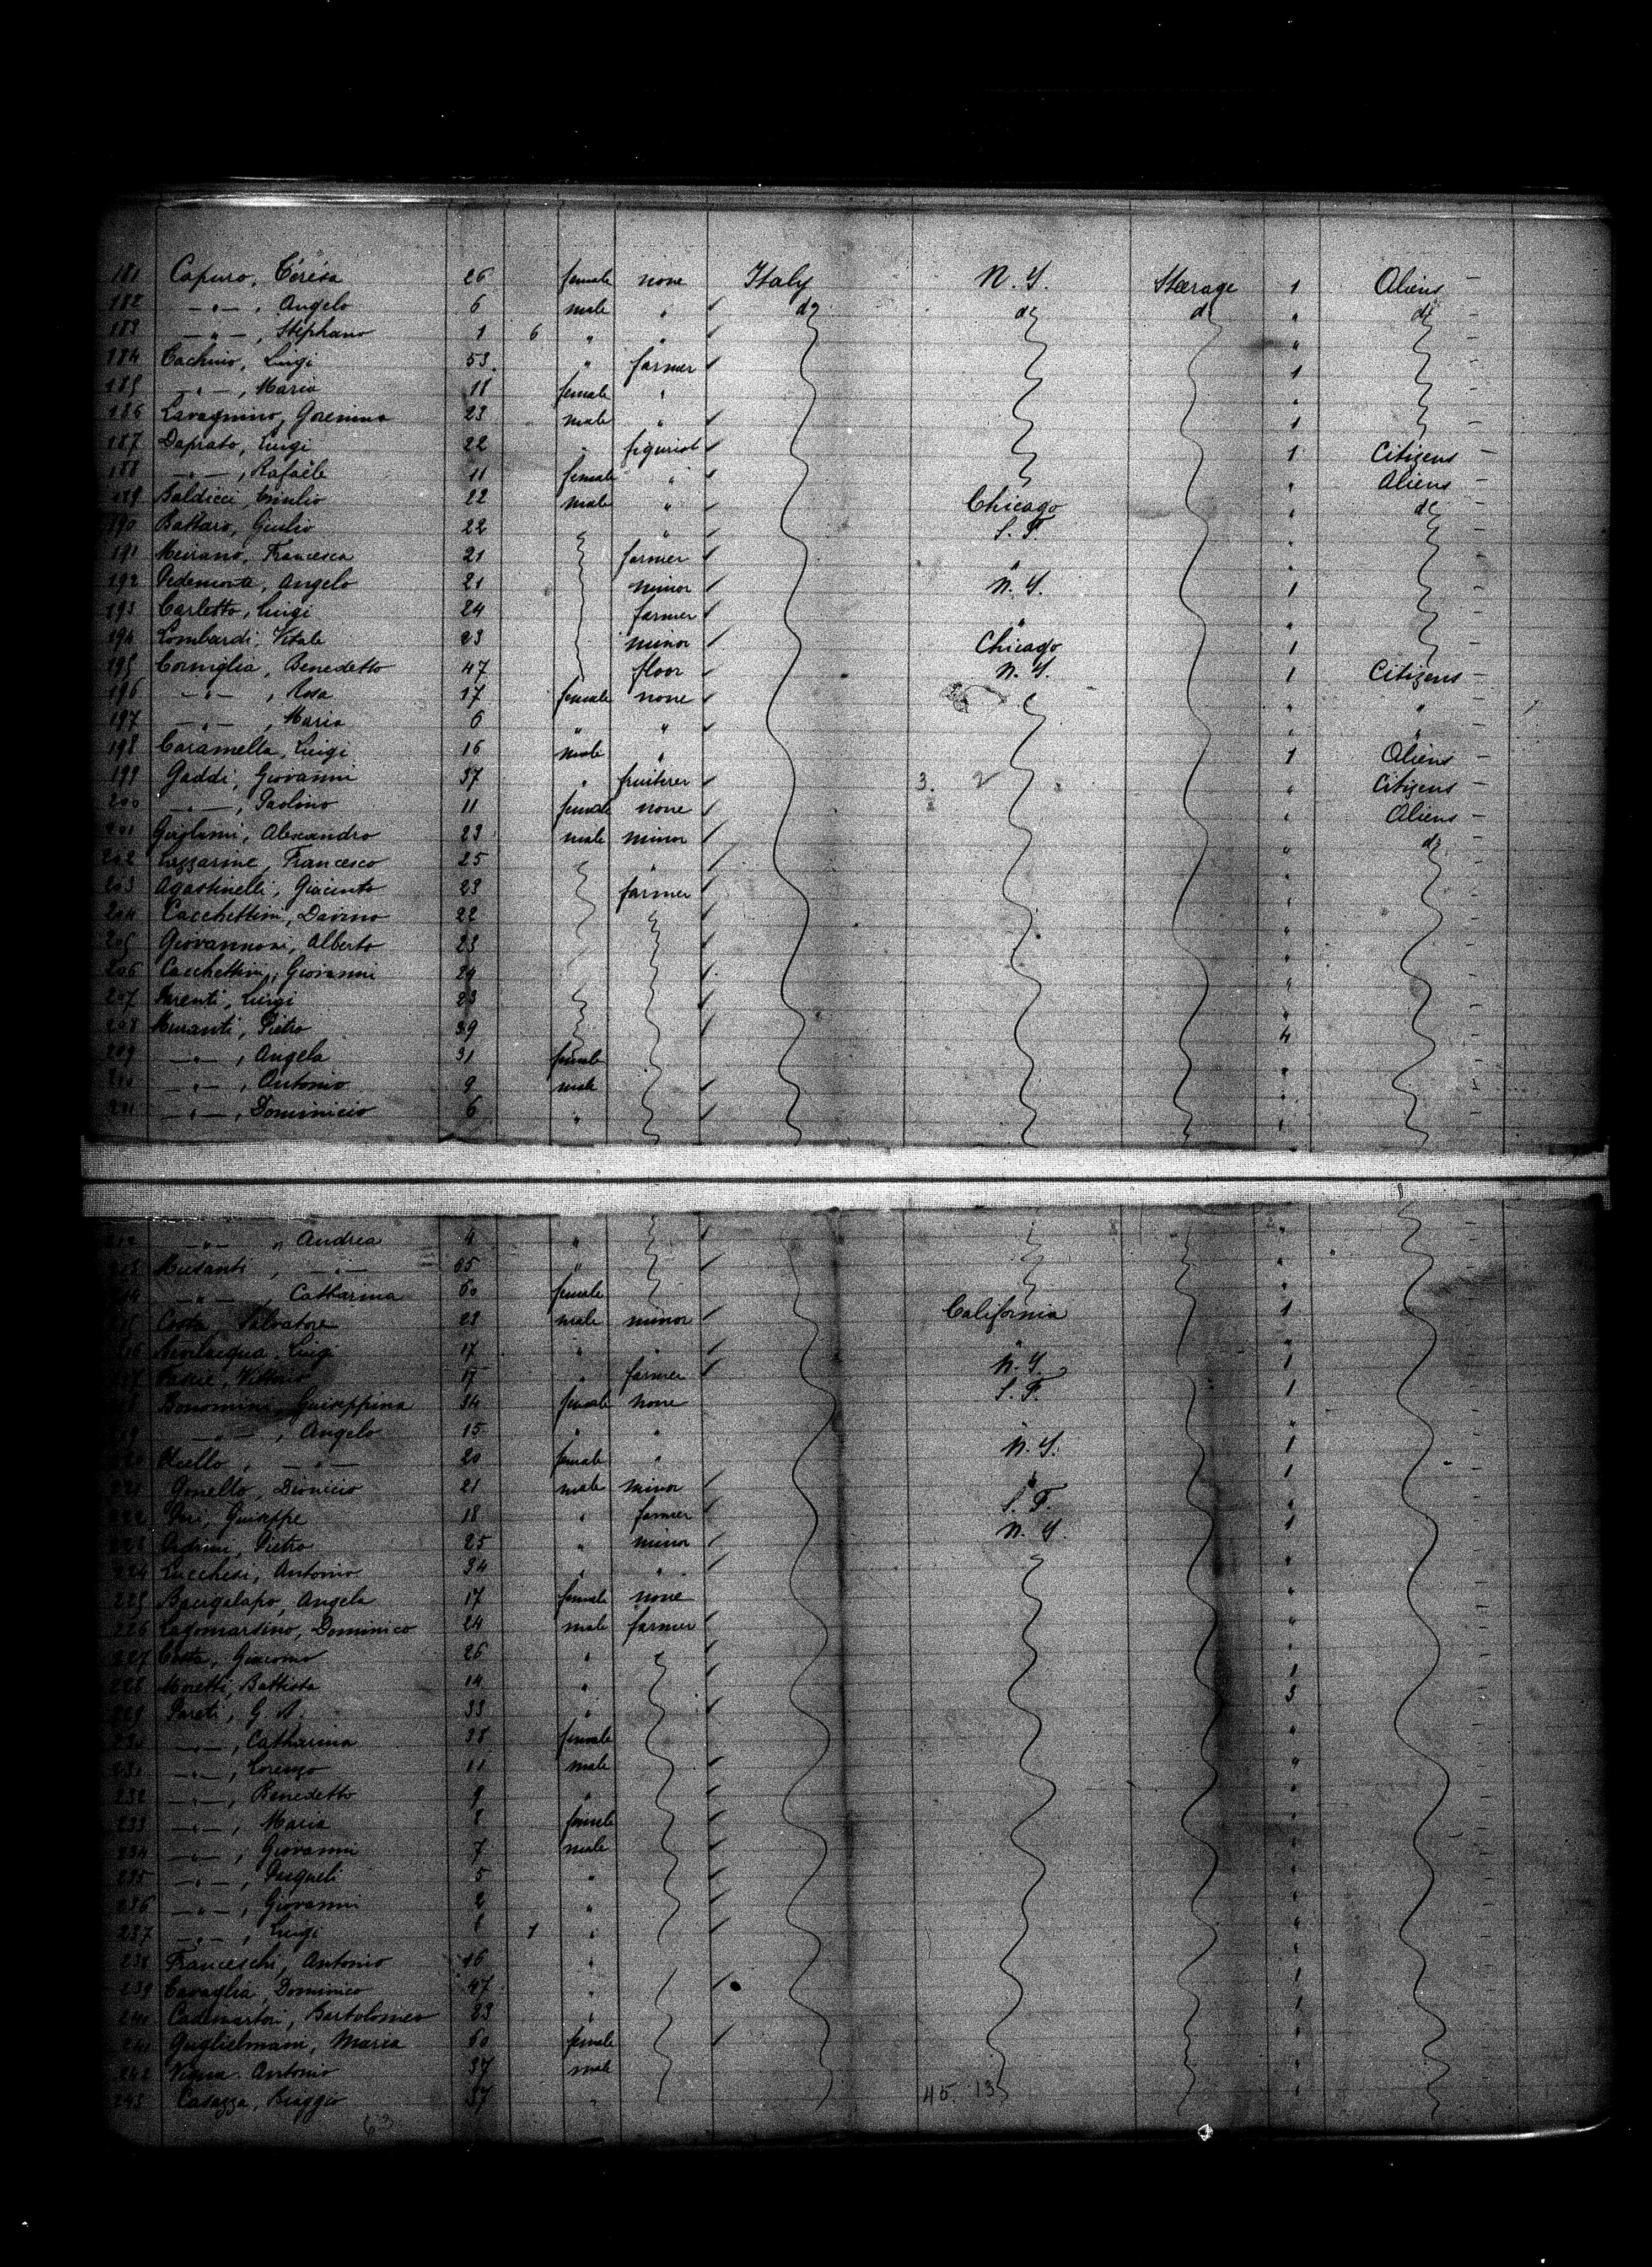 181 Capuro, Teresa 26 female none Italy N. Y. Steerage 1 Aliens -
182 -"-, Angelo 6 male " do do do " do
183 -"-, Stephano 1 6 " " "
184 Luigi 53 " farmer 1
185 -"-, Maria 18 female " "
186 Lavagnino, 23 male " 1
187 Daprato, Luigi 22 " figurist 1 Citizens -
188 -"-, Rafaele 11 female " " Aliens -
189 Baldicci, 22 male " Chicago " do
190 Giulio 22 " S. F. "
191 Meirano, Francesca 21 farmer " "
192 Pedemonte, Angelo 21 minor N. Y. 1
193 Carletto, Luigi 24 farmer " "
194 Lombardi, Vitale 23 minor Chicago 1
195 Corniglia, Benedetto 47 floor N. Y. 1 Citizens -
196 -"-, Rosa 17 female none " "
197 -"-, Maria 6 " " " "
198 Caramella, Luigi 16 male " 1 Aliens -
199 Gaddi, Giovanni 37 " fruiterer 3. 2 " Citizens -
200 -"-, Paolino 11 female none " Aliens -
201 Alexandro 23 male minor " do
202 Lazzarine, Francesco 25 " "
203 Agostinelli, Giacinto 23 farmer "
204 Cacchettini, Davino 22 "
205 Giovannoni, Alberto 23 "
206 Cacchettini, Giovanni 24 "
207 Parenti, Luigi 23 "
208 Pietro 39 4
209 -"-, Angela 31 female "
210 -"-, Antonio 9 male "
211 -"-, Dominicio 6 " "
212 -"- " Andrea 4 " "
213 -"- 65 " "
214 -"-, Catharina 60 female "
215 Costa, Salvatore 23 male minor California 1
216 Bevilacqua, Luigi 17 " " " "
217 17 " farmer N. Y. 1
218 Bonomini, Guiseppina 34 female none S. F. 1
219 -"-, Angelo 15 " " " "
220 -"- 20 female " N. Y. 1
221 Gonello, Dionicio 21 male minor " 1
222 Guiseppe 18 " farmer S. F. "
223 Pietro 25 " minor N. Y. 1
224 Lucchesi, Antonio 34 " " "
225 Angela 17 female none "
226 Lagomarsino, Dominico 24 male farmer "
227 Costa, Giacomo 26 " "
228 Moretti, Battista 14 " 1
229 33 " 3
230 -"-, Catharina 38 female "
231 -"-, Lorenzo 11 male "
232 -"-, Benedetto 9 " "
233 -"-, Maria 8 female "
234 -"-, Giovanni 7 male "
235 -"-, 5 " "
236 -"-, Giovanni 2 " "
237 -"-, Luigi 1 " "
238 Franceschi, Antonio 46 " "
239 Cavaglia, Dominico 47 " 1
240 Cademartori, Bartolomeo " 1
241 Guglielmani, Maria 60 female 1
242 Vigna, Antonio 37 male "
243 Casazza, Biaggio 57 " 45. 13 "
63